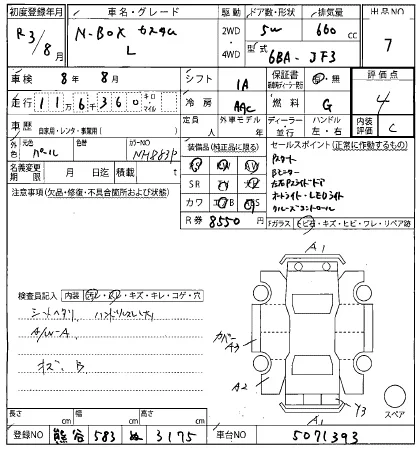 初度登録年月 車名・グレード 駆動 ドア数・形状 排気量 出品NO
R3/8月 N-BOX カスタム L 2WD・4WD 5W 660 cc 7
型式 6BA-JF3
車検 8年 8月 シフト IA 保証書 有・無 評価点
走行 116360 キロ・マイル 冷房 AAC 燃料 G 4
車歴 自家用・レンタ・事業用( ) 定員 人 外車モデル年 ディーラー 並行 ハンドル 左・右 内装評価 C
外色 元色 パール 色替 カラーNO NH883P 装備品(純正品に限る) セールスポイント(正常に作動するもの)
名義変更期限 月 日迄 積載 t
Pスタート
Bモニター
左右Pスライドドア
オートライト・LEDライト
クルーズコントロール
SR
カワ
R券 8550 円
注意事項(欠品・修復・不具合箇所および状態)
Fガラス トビ石・キズ・ヒビ・ワレ・リペア跡
A1
検査員記入 内装 汚レ・スレ・キズ・キレ・コゲ・穴
シートヘタリ ハンドルスレ大
A/W-A
キズ・B
カバーA3
A2
Y3
A1
スペア
長さ cm 幅 cm 高さ cm
登録NO 熊谷 583 ぬ 3175 車台NO 5071393